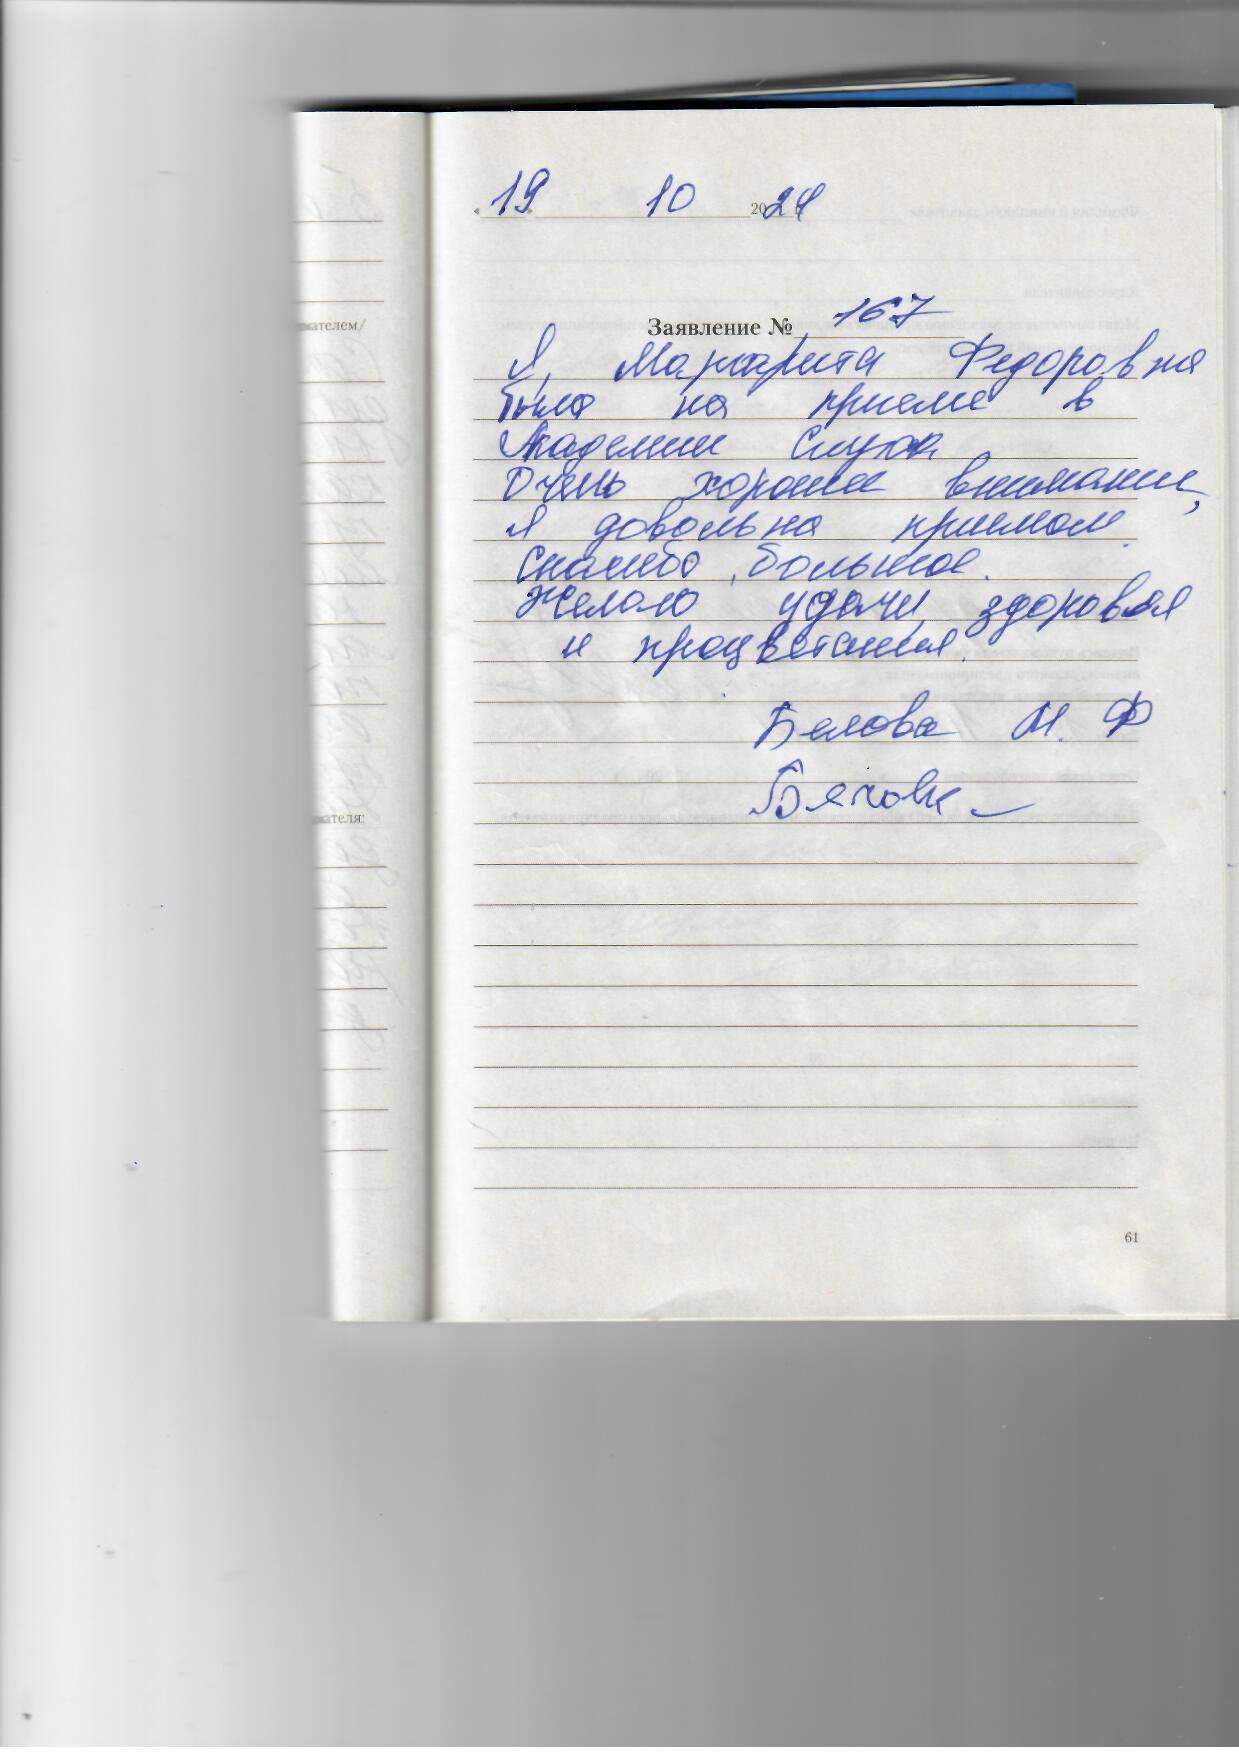 « 19 » 10 2024
Заявление № 167
Я, Маргарита Федоровна
была на приеме в
Академии Слуха
Очень хорошее внимание,
я довольна приемом.
Спасибо, большое.
Желаю удачи, здоровья
и процветания.
Белова М. Ф
ателем/
ателя:
61